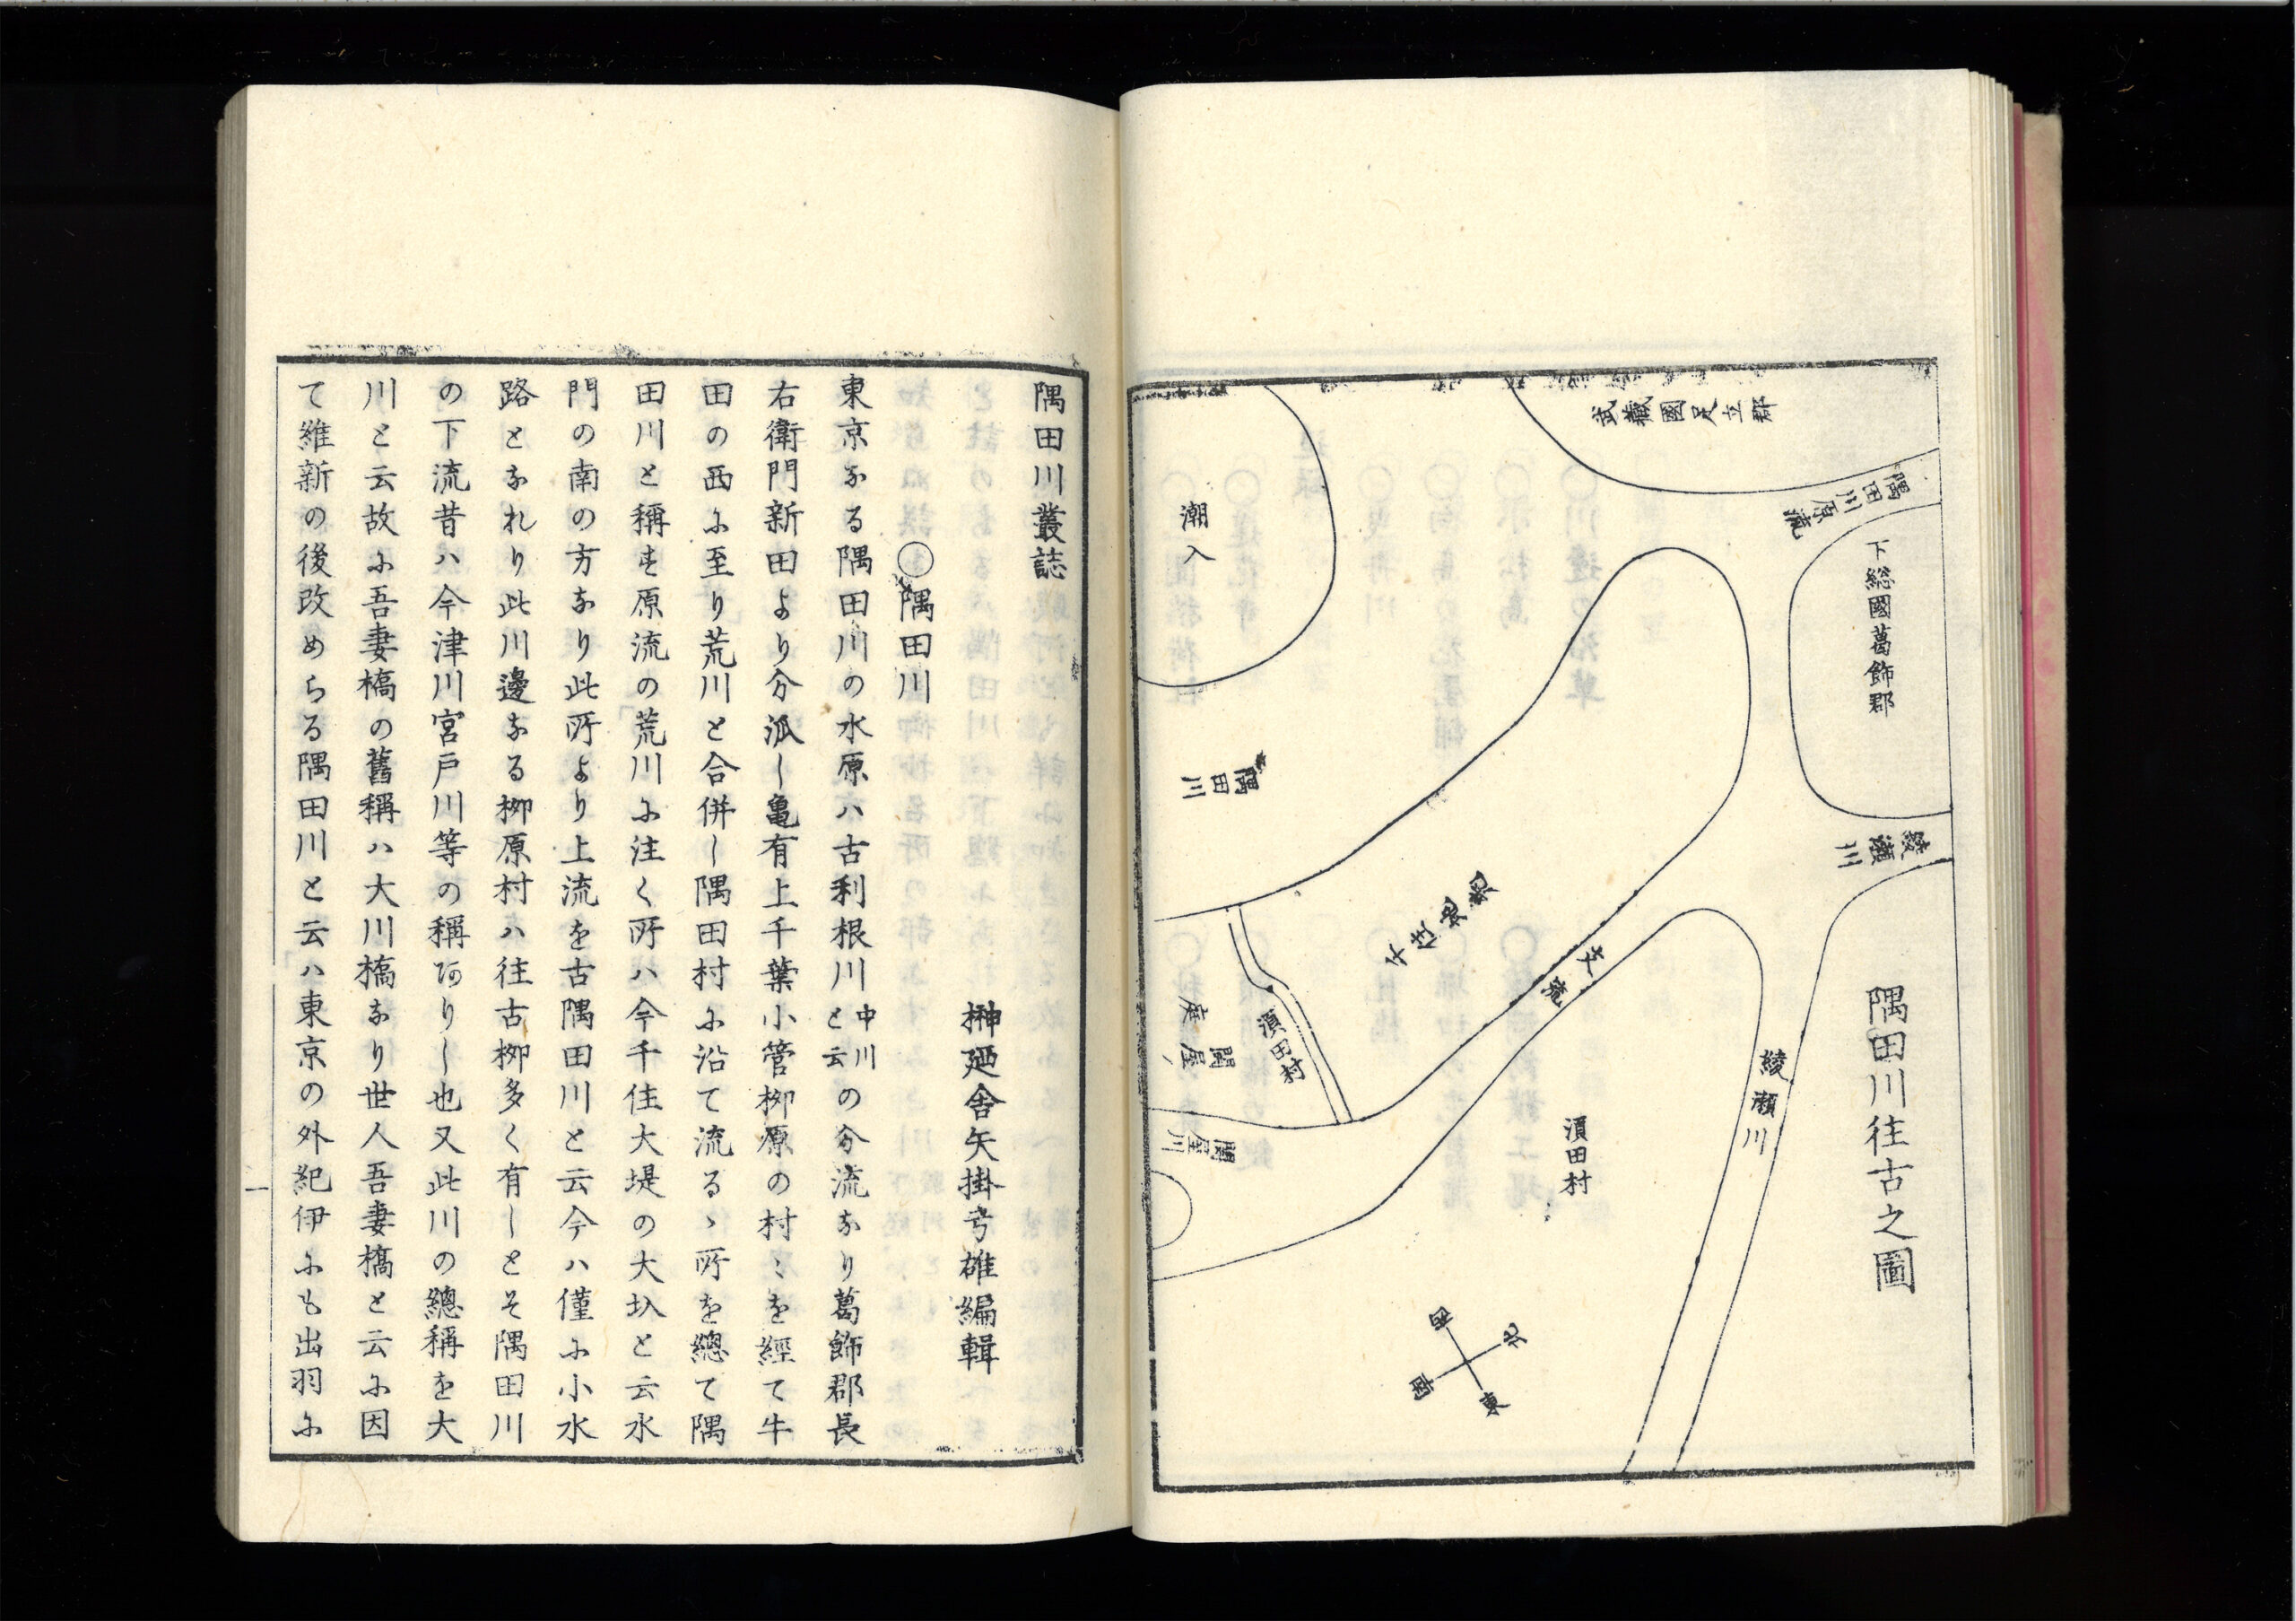 隅田川往古之圖
武藏國足立郡
隅田川原流
下総國葛飾郡
綾瀬川
潮入
隅田川
千住
支流
綾瀬川
須田村
須田村
関屋
庭
関屋川
西
北
南
東
隅田川叢誌
榊廼舎矢掛弓雄編輯
〇隅田川
東京なる隅田川の水原ハ古利根川中川と云の分流なり葛飾郡長
右衛門新田より分派し亀有上千葉小管栁原の村〻を經て牛
田の西ふ至り荒川と合併し隅田村ふ沿て流るゝ所を總て隅
田川と稱す原流の荒川ふ注く所ハ今千住大堤の大圦と云水
門の南の方なり此所より上流を古隅田川と云今ハ僅ふ小水
路となれり此川邊なる栁原村ハ往古栁多く有しとそ隅田川
の下流昔ハ今津川宮戸川等の稱ありし也又此川の總稱を大
川と云故ふ吾妻橋の舊稱ハ大川橋なり世人吾妻橋と云ふ因
て維新の後改めらる隅田川と云ハ東京の外紀伊ふも出羽ふ
一